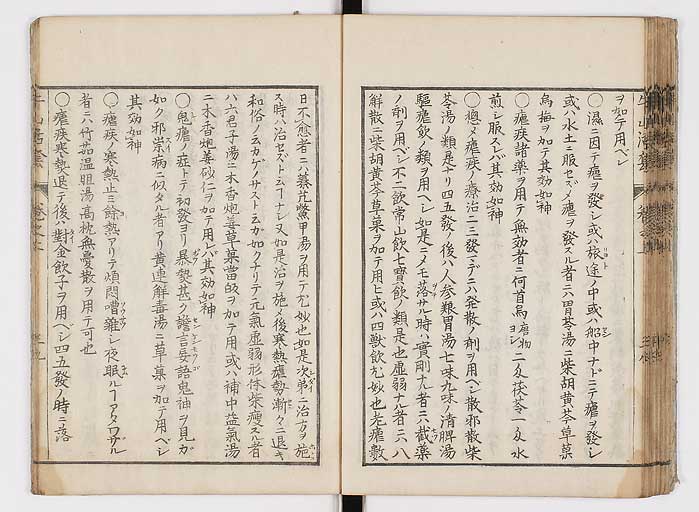 ヲ加テ用ベシ
○濕ニ因テ瘧ヲ發シ或ハ旅途ノ中或ハ船中ナドニテ瘧ヲ發シ
或ハ水土ニ服セズメ瘧ヲ發スル者ニ八胃苓湯ニ柴胡黄芩草菓
烏梅ヲ加テ其効如神
○瘧疾諸藥ヲ用テ無効者ニ何首烏ニ匁茯苓一匁水
煎シ服スレバ其効如神
○總メ瘧疾ノ療治ニ三發マデニハ發散ノ劑ヲ用ベシ散邪散柴
苓湯ノ類是ナリ四五發ノ後ハ人参粮胃湯七味九味ノ清脾湯
驅瘧飲ノ類ヲ用ベシ如是ニメモ落サル時ハ實剛ナル者ニハ截藥
ノ劑ヲ用ベシ不二飲常山飲七寶飲ノ類是也虚弱ナル者ニハ八
解散ニ柴胡黄芩草菓ヲ加テ用ヒ或ハ四獸飲尤妙也老瘧數
日不愈者ニハ蓽茷鱉甲湯ヲ用テ尤妙也如是次第ニ治方ヲ施
ス時ハ治セズト云ヿナシ又如是治ヲ施メ後寒熱瘧勢漸々ニ退キ
和俗ノ云カゲノサストニ云カ如クナリテ元氣虚弱形体柴瘦スル者
ハ六君子湯ニ木香炮姜草菓當皈ヲ加テ用或ハ補中益氣湯
ニ木香炮姜砂仁ヲ加テ用レバ其効如神
○鬼瘧ノ症トテ初發ヨリ暴熱甚ク譫言妄語鬼神ヲ見カ
如ク邪崇病ニ似タル者アリ黄連解毒湯ニ草菓ヲ加テ用ベシ
其効如神
○瘧疾ノ寒熱止ミ餘熱アリテ煩悶嘈雜シ夜眠ルヿアタワザル
者ニハ竹茹温胆湯高枕無憂散ヲ用テ可也
○瘧疾寒熱退テ後ハ對金飲子ヲ用ベシ四五發ノ時ニ落